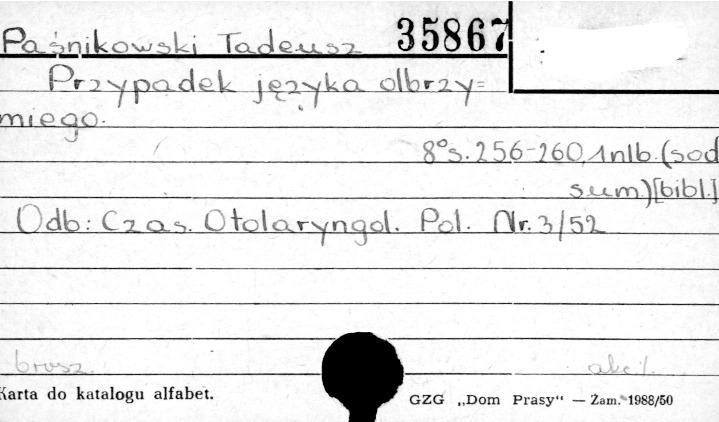 Paśnikowski Tadeusz 35867
Przypadek języka olbrzy=
miego.
8°s.256-260,1nlb.(sod
sum)[bibl.]
Odb: Czas. Otolaryngol. Pol. Nr.3/52
brosz.
Karta do katalogu alfabet.
GZG „Dom Prasy“ — Zam. 1988/50